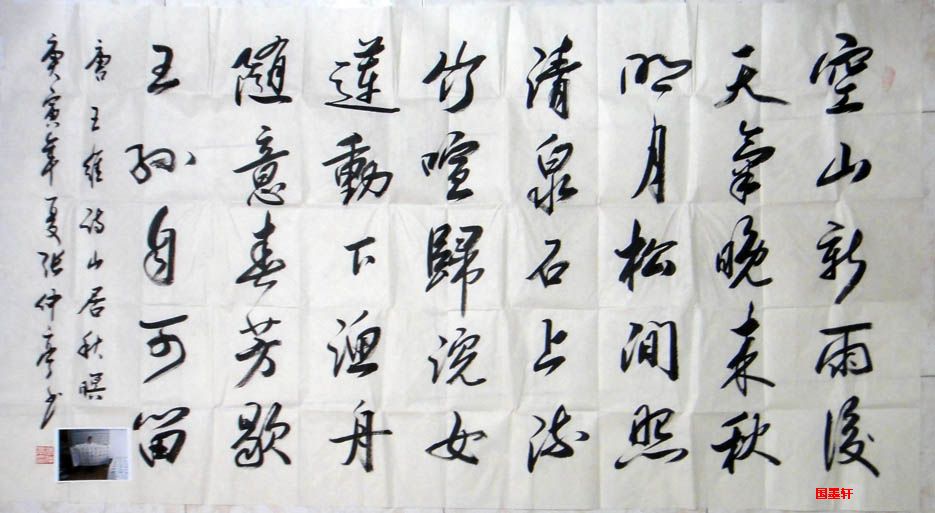 空山新雨後
天氣晚来秋
明月松間照
清泉石上流
竹喧歸浣女
蓮動下漁舟
隨意春芳歇
王孫自可留
唐王維詩山居秋暝
庚寅年夏張仲亭书
国墨轩